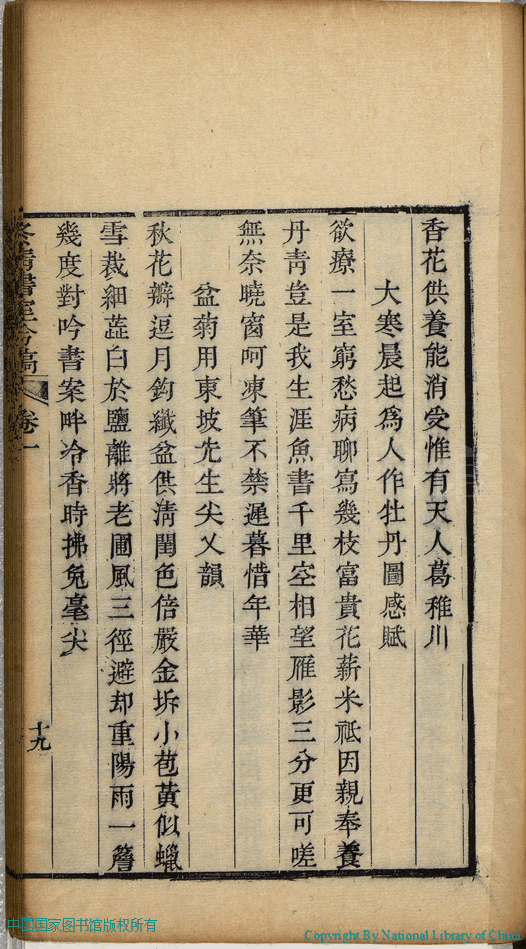 香花供養能消受惟有天人葛稚川
大寒晨起爲人作牡丹圖感賦
欲療一室窮愁病聊寫幾枝富貴花薪米祗因親奉養
丹靑豈是我生涯魚書千里空相望雁影三分更可嗟
無奈曉窗呵凍筆不禁遲暮惜年華
盆菊用東坡先生尖叉韻
秋花瓣逗月鉤纖盆供淸閨色倍嚴金坼小苞黃似蠟
雪裁細蕋白於鹽離將老圃風三徑避却重陽雨一簷
幾度對吟書案畔冷香時拂兔毫尖
卷一
十九
中国国家图书馆版权所有
Copyright By National Library of China